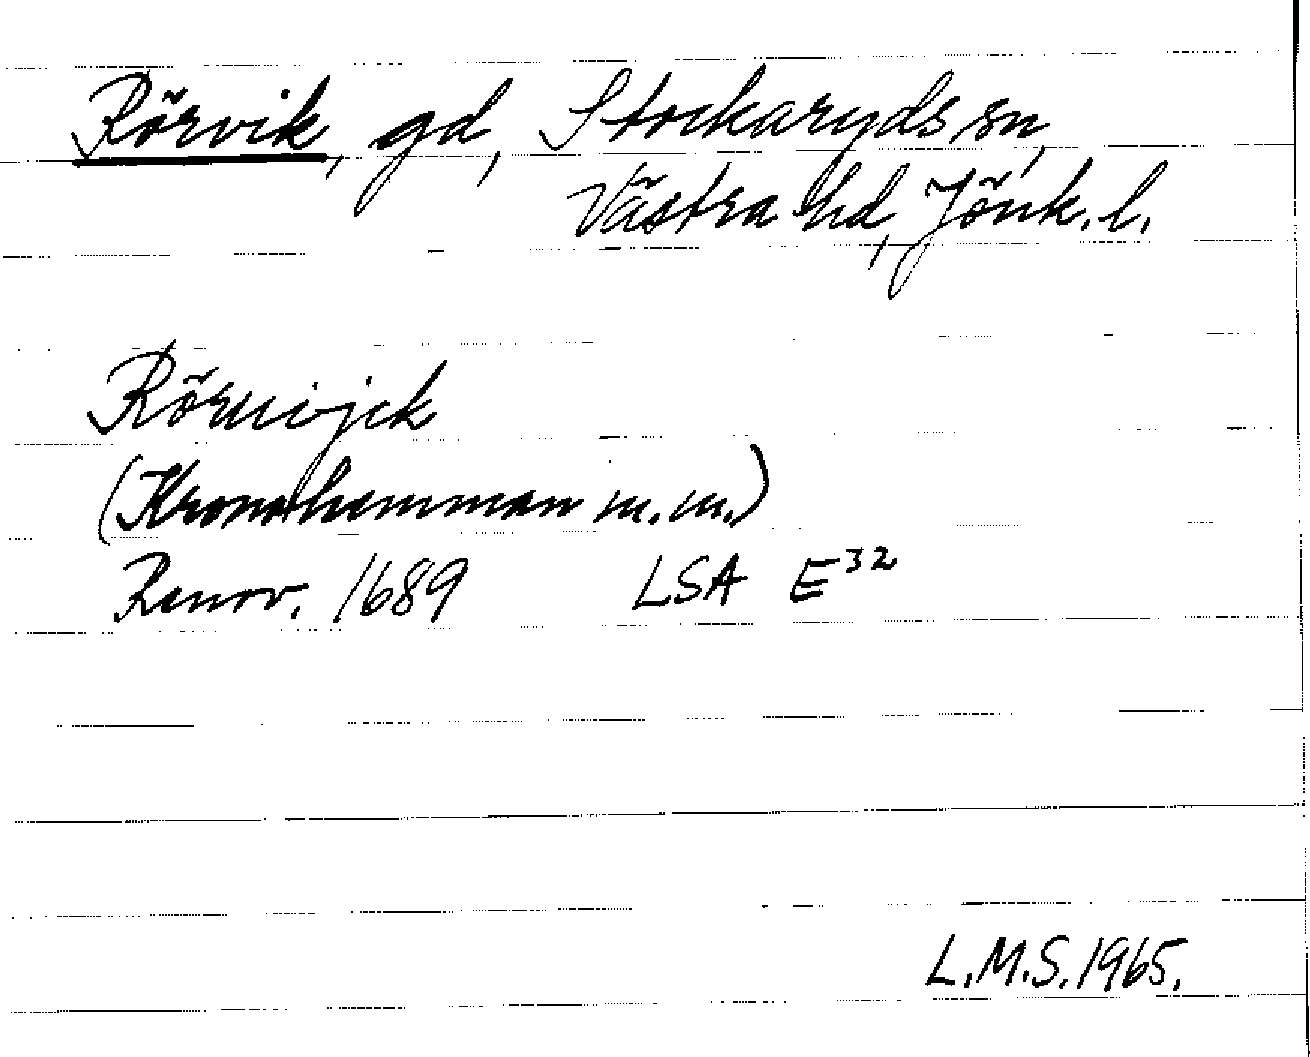 Rörvik, gd, Stockaryds sn,
Västra hd, Jönk. l.
Röruijck
(Kronohemman m.m.)
Renov. 1689 LSA E³²
L.M.S. 1965.